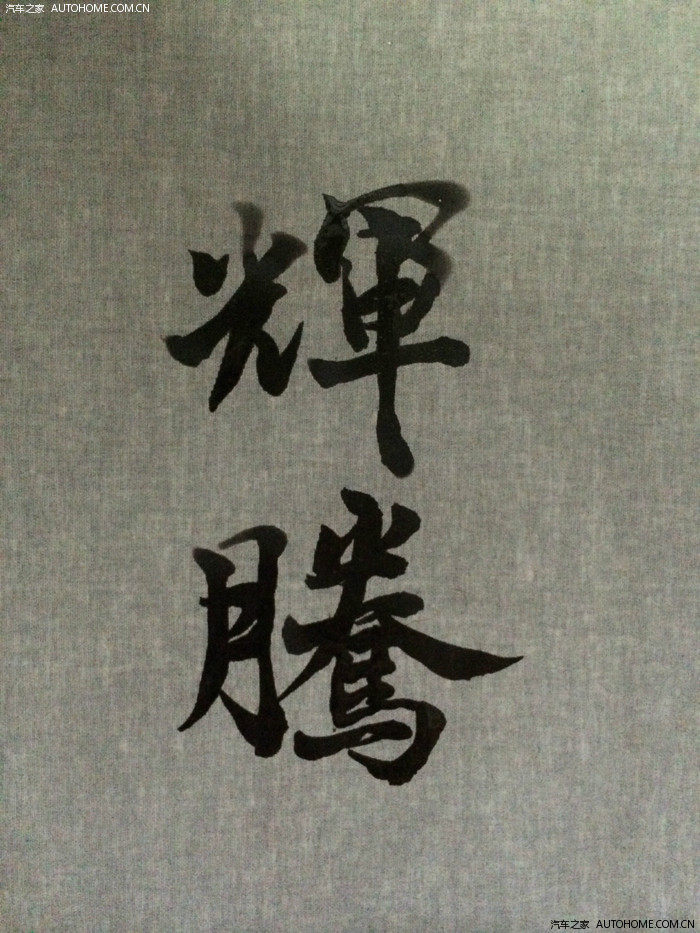 汽车之家 AUTOHOME.COM.CN
輝
騰
汽车之家 AUTOHOME.COM.CN